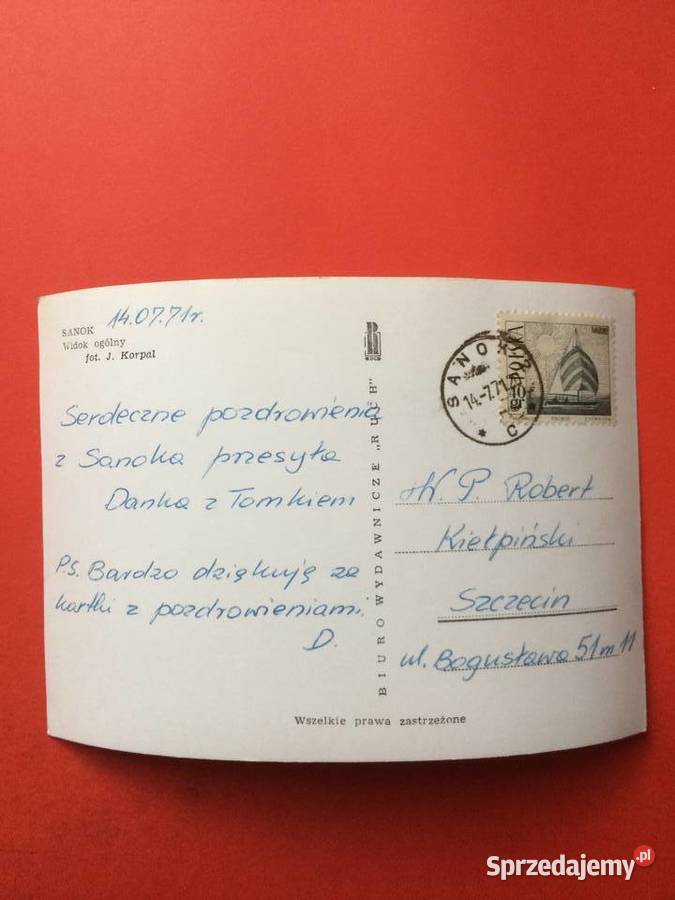 14.07.71r.
SANOK
Widok ogólny
fot. J. Korpal
Serdeczne pozdrowienia
z Sanoka przesyła
Danka z Tomkiem
Ps. Bardzo dziękuję za
kartki z pozdrowieniami.
D.
BIURO WYDAWNICZE „RUCH"
RUCH
SANOK 2
14.-7.71
C
POLSKA
W. P. Robert
Kiełpiński
Szczecin
ul. Bogusława 51 m 11
Wszelkie prawa zastrzeżone
Sprzedajemy.pl